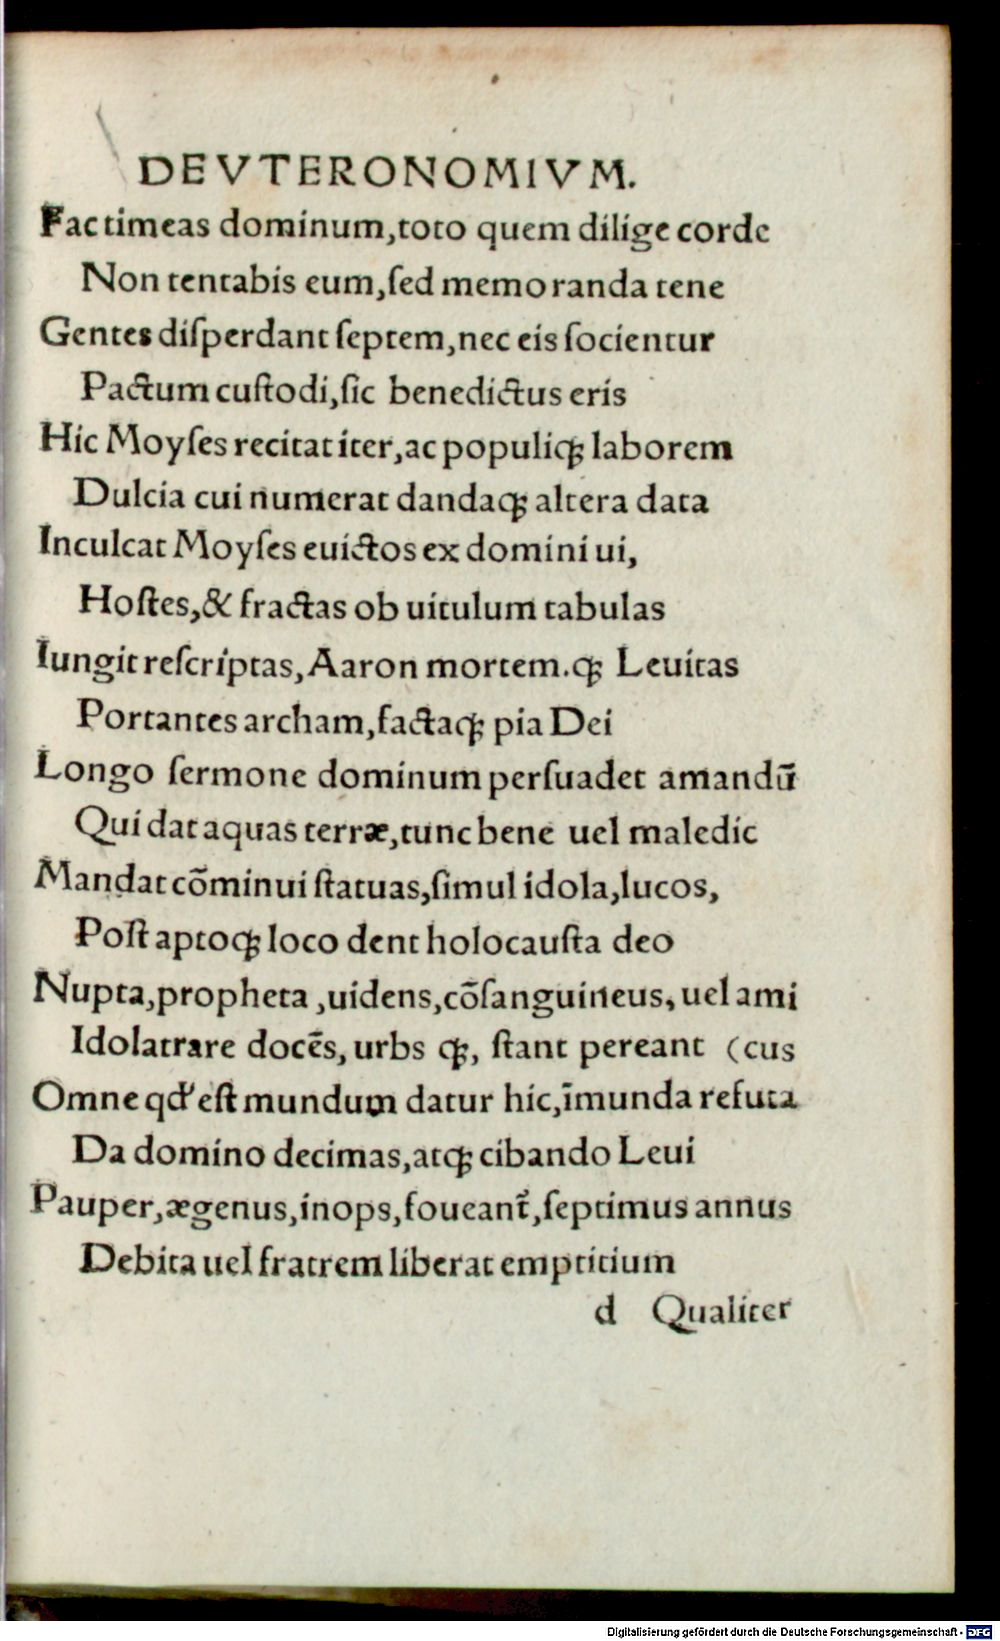 DEVTERONOMIVM.
Fac timeas dominum,toto quem dilige corde
Non tentabis eum,ſed memoranda tene
Gentes diſperdant ſeptem,nec eis ſocientur
Pactum cuſtodi,ſic benedictus eris
Hic Moyſes recitat iter,ac populiqꝫ laborem
Dulcia cui numerat dandaqꝫ altera data
Inculcat Moyſes euictos ex domini ui,
Hoſtes,& fractas ob uitulum tabulas
Iungit reſcriptas,Aaron mortem.qꝫ Leuitas
Portantes archam,factaqꝫ pia Dei
Longo ſermone dominum perſuadet amandū
Qui dat aquas terræ,tunc bene uel maledic
Mandat cōminui ſtatuas,ſimul idola,lucos,
Poſt aptoqꝫ loco dent holocauſta deo
Nupta,propheta ,uidens,cōſanguineus, uel ami
Idolatrare docēs, urbs qꝫ, ſtant pereant (cus
Omne qd' eſt mundum datur hic,īmunda refuta
Da domino decimas,atqꝫ cibando Leui
Pauper,ægenus,inops,foueant᷑,ſeptimus annus
Debita uel fratrem liberat emptitium
d Qualiter
Digitalisierung gefördert durch die Deutsche Forschungsgemeinschaft - DFG